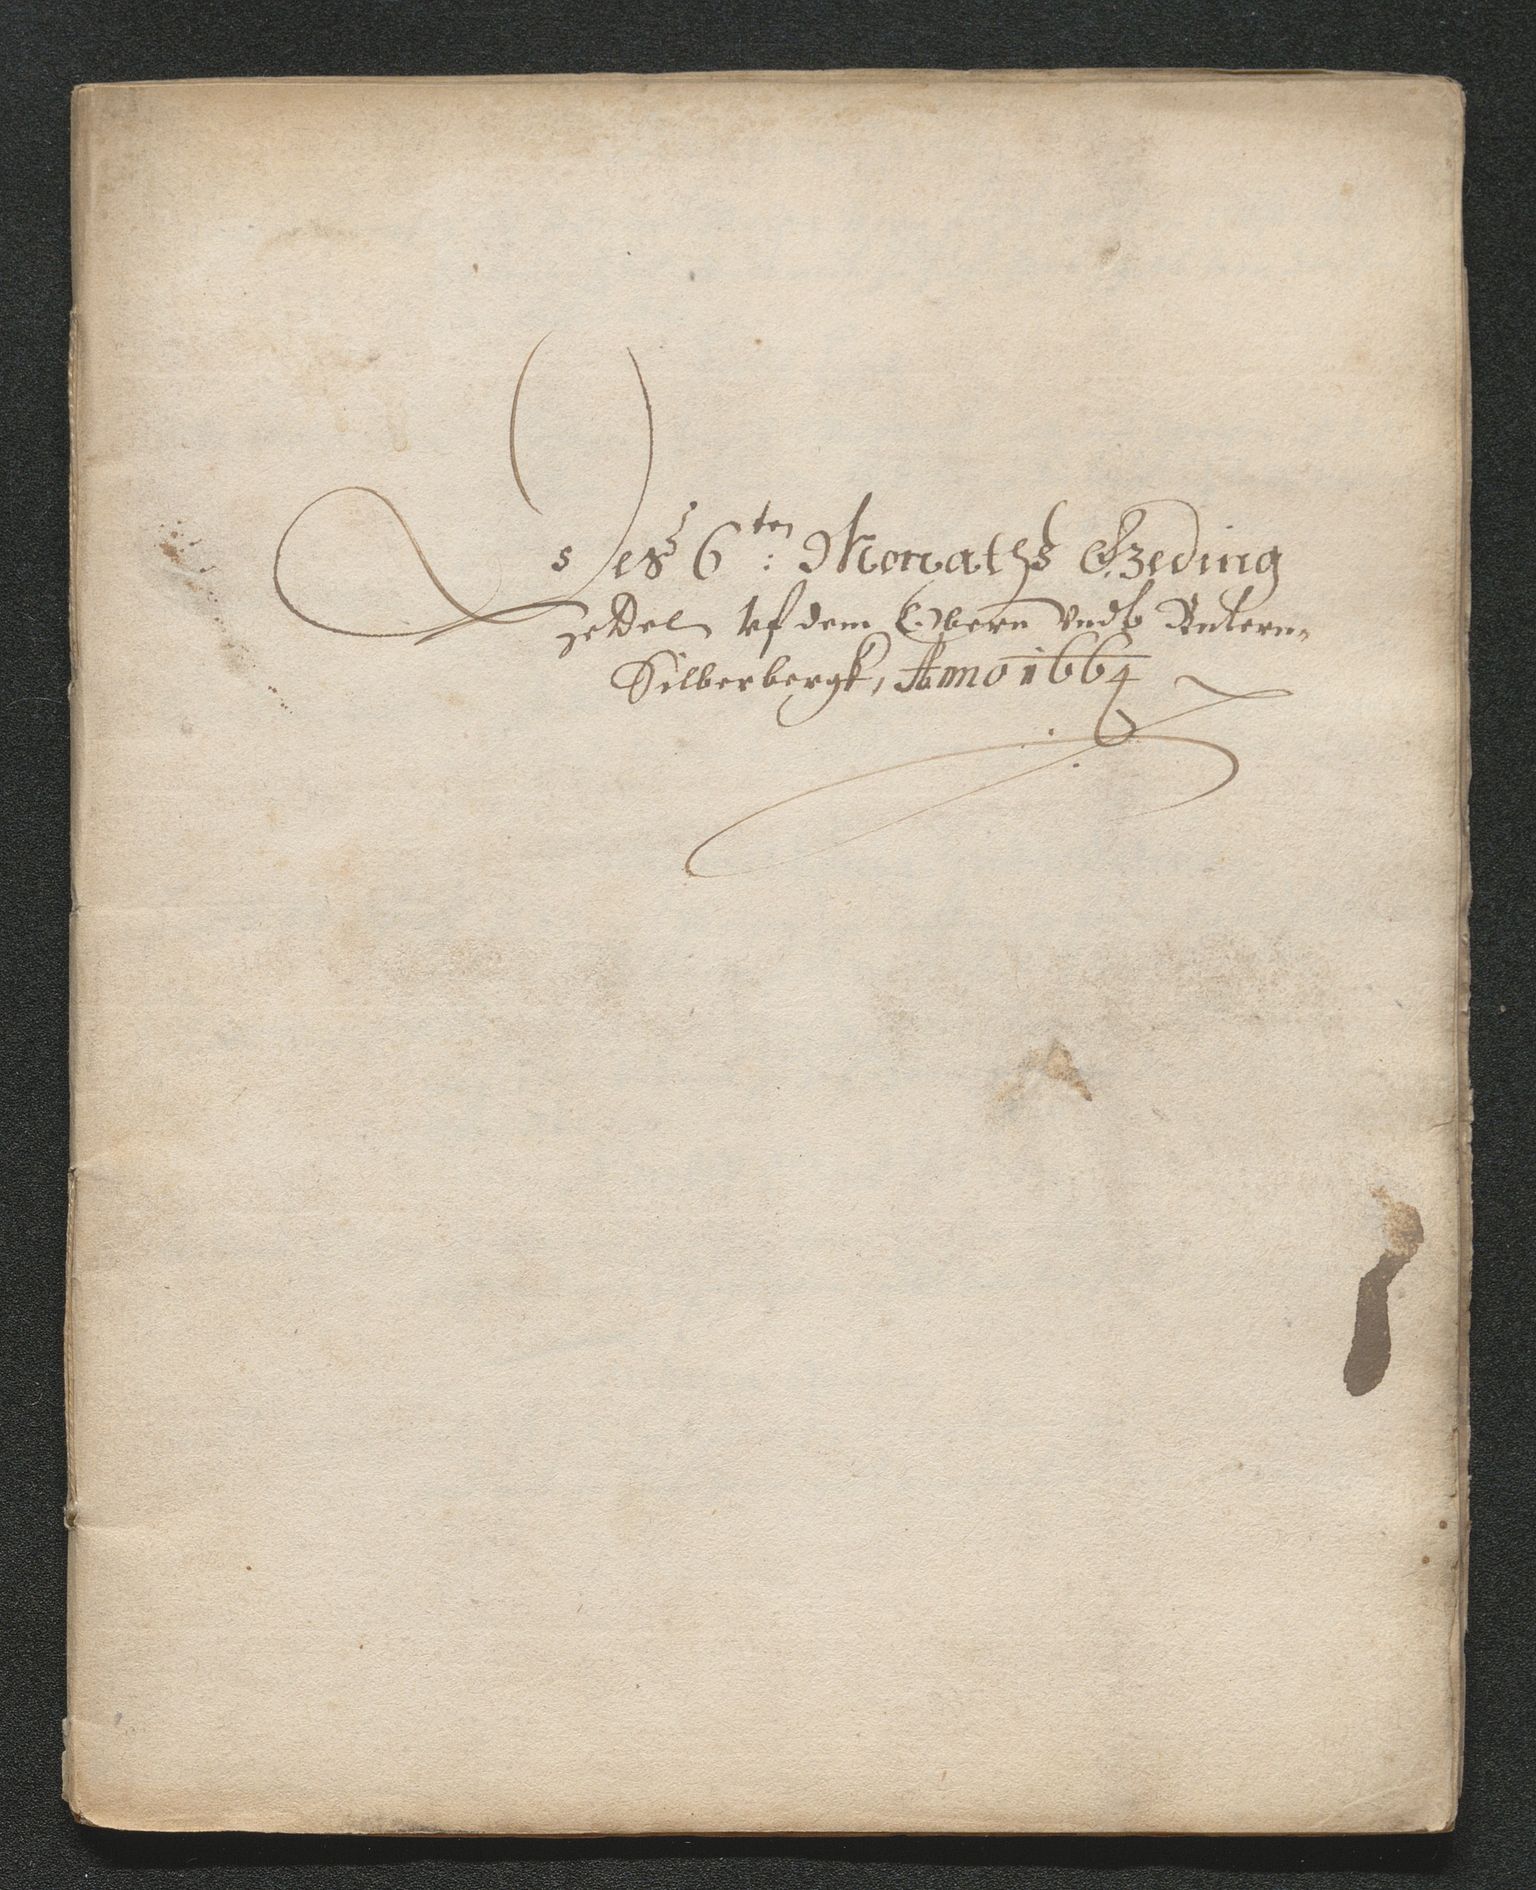 Des 6ten: Monaths Gzeding
zettel uf dem Obern undt Untern
Silberbergk, Anno 1664